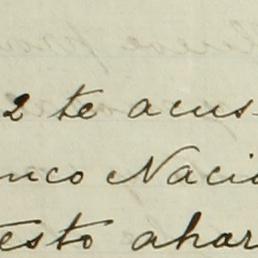 2 te acus
nco Naci
esto ahor